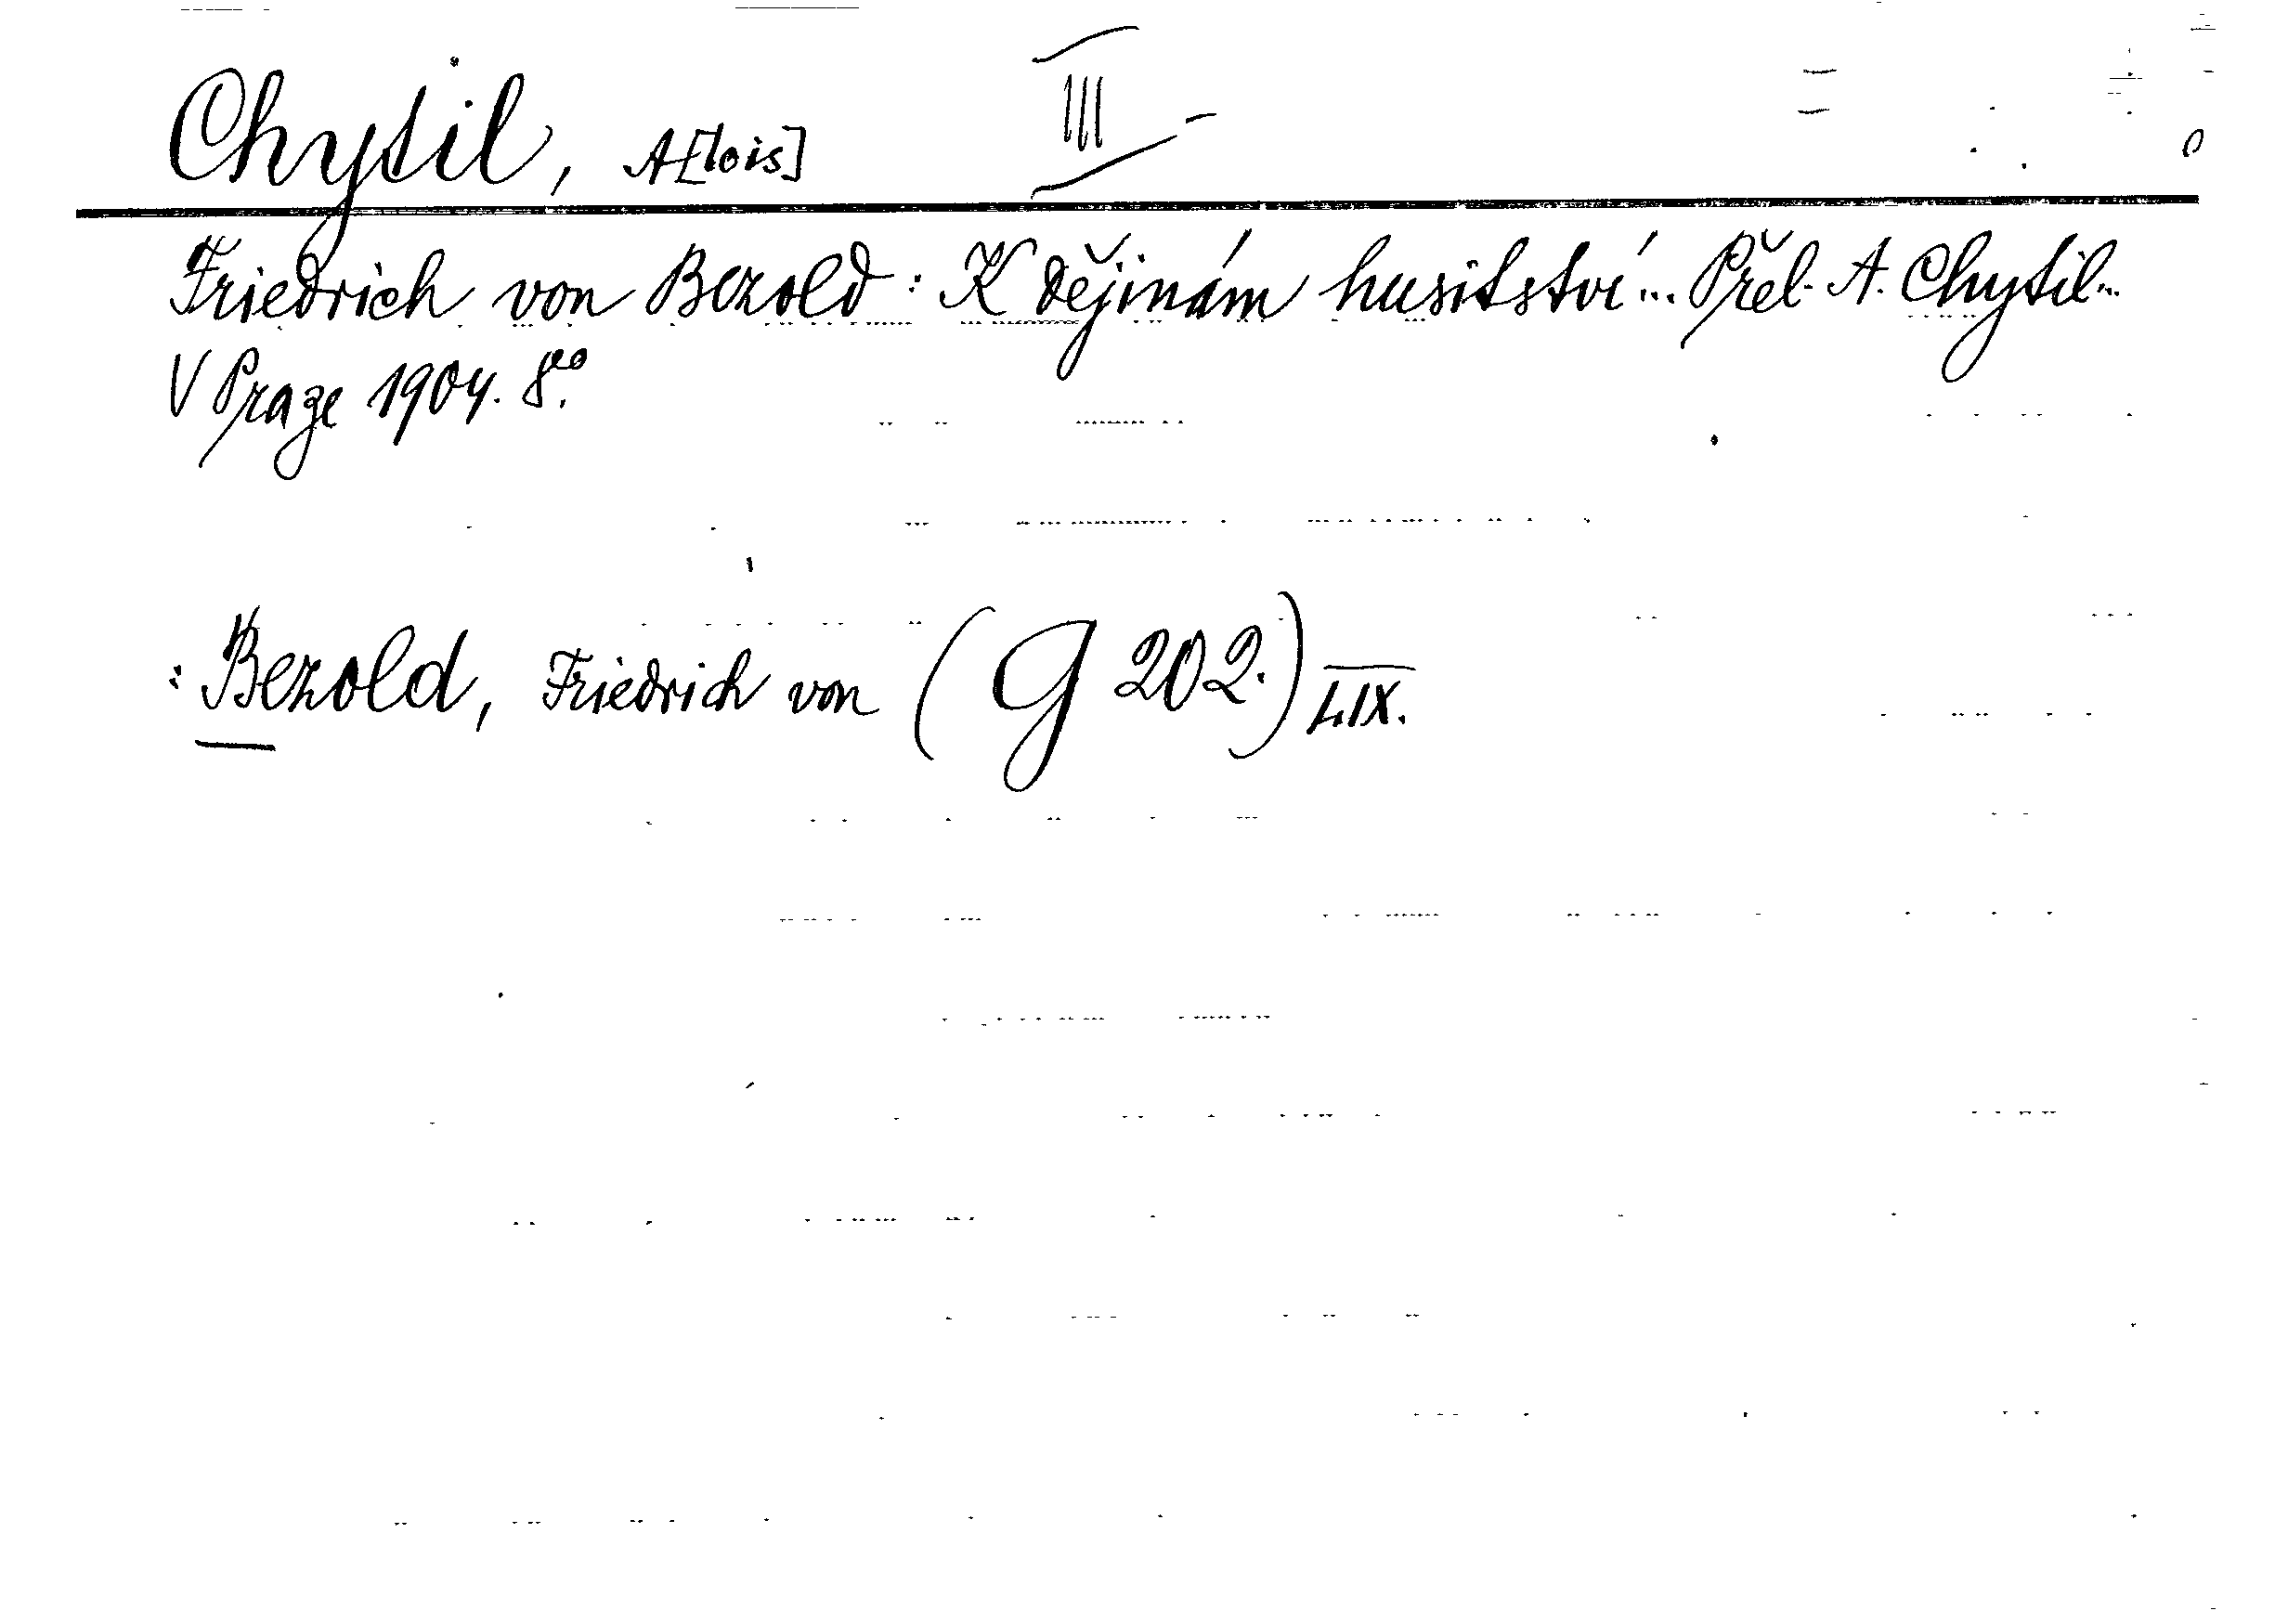 Chytil, A[lois] III
Friedrich von Bezold: K dějinám husitství... Přel. A. Chytil...
V Praze 1904. 8°.
: Bezold, Friedrich von (G 202.) LIX.